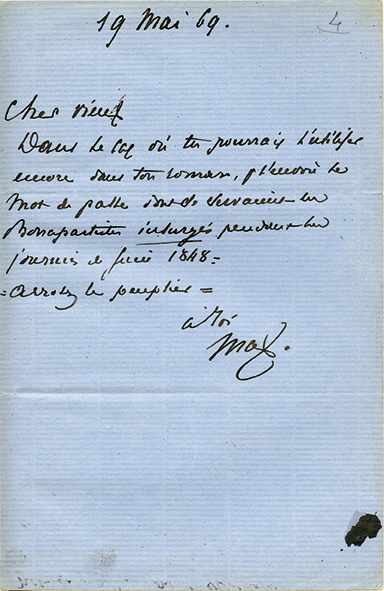 19 Mai 69.
4
Cher vieux
Dans le cas où tu pourrais l'utiliser
encore dans ton roman, je t'envoie le
mot de passe dont se servaient les
Bonapartistes insurgés pendant les
journées de juin 1848 =
= arrosez le peuplier =
à toi
Max.